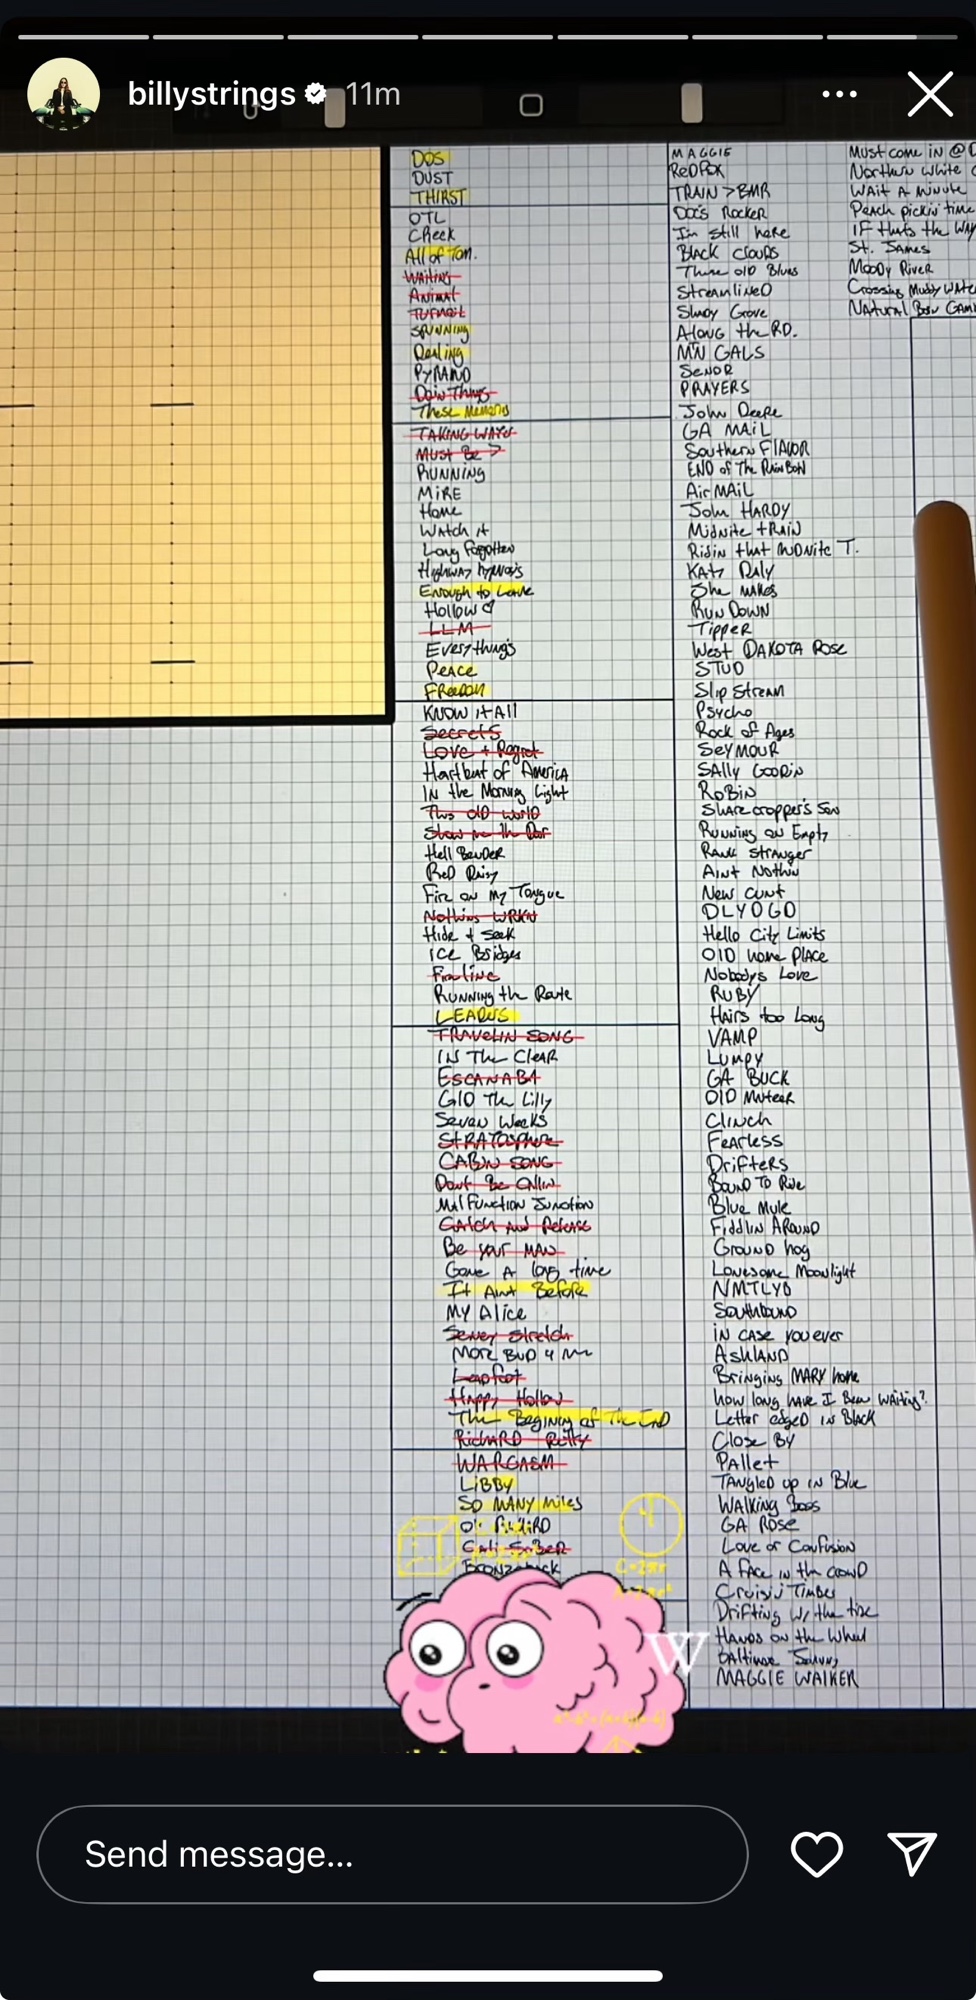 billystrings 11m
DOS
DUST
THIRST
OTL
CReek
All of Tom.
Waiting
Animal
Turmoil
SPUNNING
Dealing
PYRAMID
Doin Things
These Memories
TAKING WATER
Must Be >
RUNNING
MiRE
Home
Watch it
Long Forgotten
Highway Hypnosis
Enough to Leave
Hollow ♡
LLM
Everything's
Peace
Freedom
KNOW it All
Secrets
Love + Regret
Hartbeat of America
IN the Morning Light
This old world
Show me the Door
Hell BenDER
Red Daisy
Fire on My Tongue
Nothing WRKN
Hide + Seek
Ice Bridges
Fireline
RUNNING the Route
LEADERS
TRAVELIN SONG
IN The CleaR
ESCANABA
GilD The Lilly
Seven Weeks
STRATOsphere
CABIN SONG
Dont Be CAllin
MalFunction Junction
Catch and Release
Be your MAN
Gone A long time
It Aint Before
MY Alice
Seney Stretch
More BUD 4 Me
Leadfoot
Happy Hollow
The Begining of The End
RichARD Petty
WARGASM
LiBBY
SO MANY Miles
Cali Sober
BRONZeback
MAGGIE
ReDFOX
TRAIN > BMR
Doc's Rocker
I'm still here
Black Clouds
These old Blues
StreamlineD
Shady Grove
Along the RD.
MN GALS
SeNOR
PRAYERS
John Deere
GA MAiL
Southern FlAVOR
END of The RainBow
Air MAiL
John HARDY
Midnite tRAiN
Ridin that midnite T.
Katy Daly
She makes
Run DOWN
TippeR
West DAKOTA Rose
STUD
Slip Stream
Psycho
Rock of Ages
SeYMOUR
SAlly GooDin
RoBiN
Sharecropper's Son
Running on Empty
Rank Stranger
Aint Nothin
New Cunt
DLYOGD
Hello City Limits
OlD home PlAce
Nobodys Love
RUBY
Hairs too Long
VAMP
LUMPY
GA BUCK
OlD Muteer
Clinch
Fearless
DRifteRs
Bound To Ride
Blue Mule
Fiddlin AROUND
GROUND hog
Lonesome Moonlight
NMTLYD
Southbound
iN case you ever
ASHLAND
Bringing MARY home
how long have I Been waiting?
Letter edged in Black
Close By
PAllet
Tangled up in Blue
Walking Boss
GA ROSe
Love or Confusion
A Face in the crowD
Cruisin Timber
Drifting w/ the tide
Hands on the Wheel
Baltimore Johnny
MAGGIE WALKER
Must come in @
Northern White
Wait A minute
Peach pickin time
iF thats the WAY
St. James
MooDy RiveR
Crossing Muddy WAte
NAtural Born GAM
C=2πr
A=πr²
W
Send message...